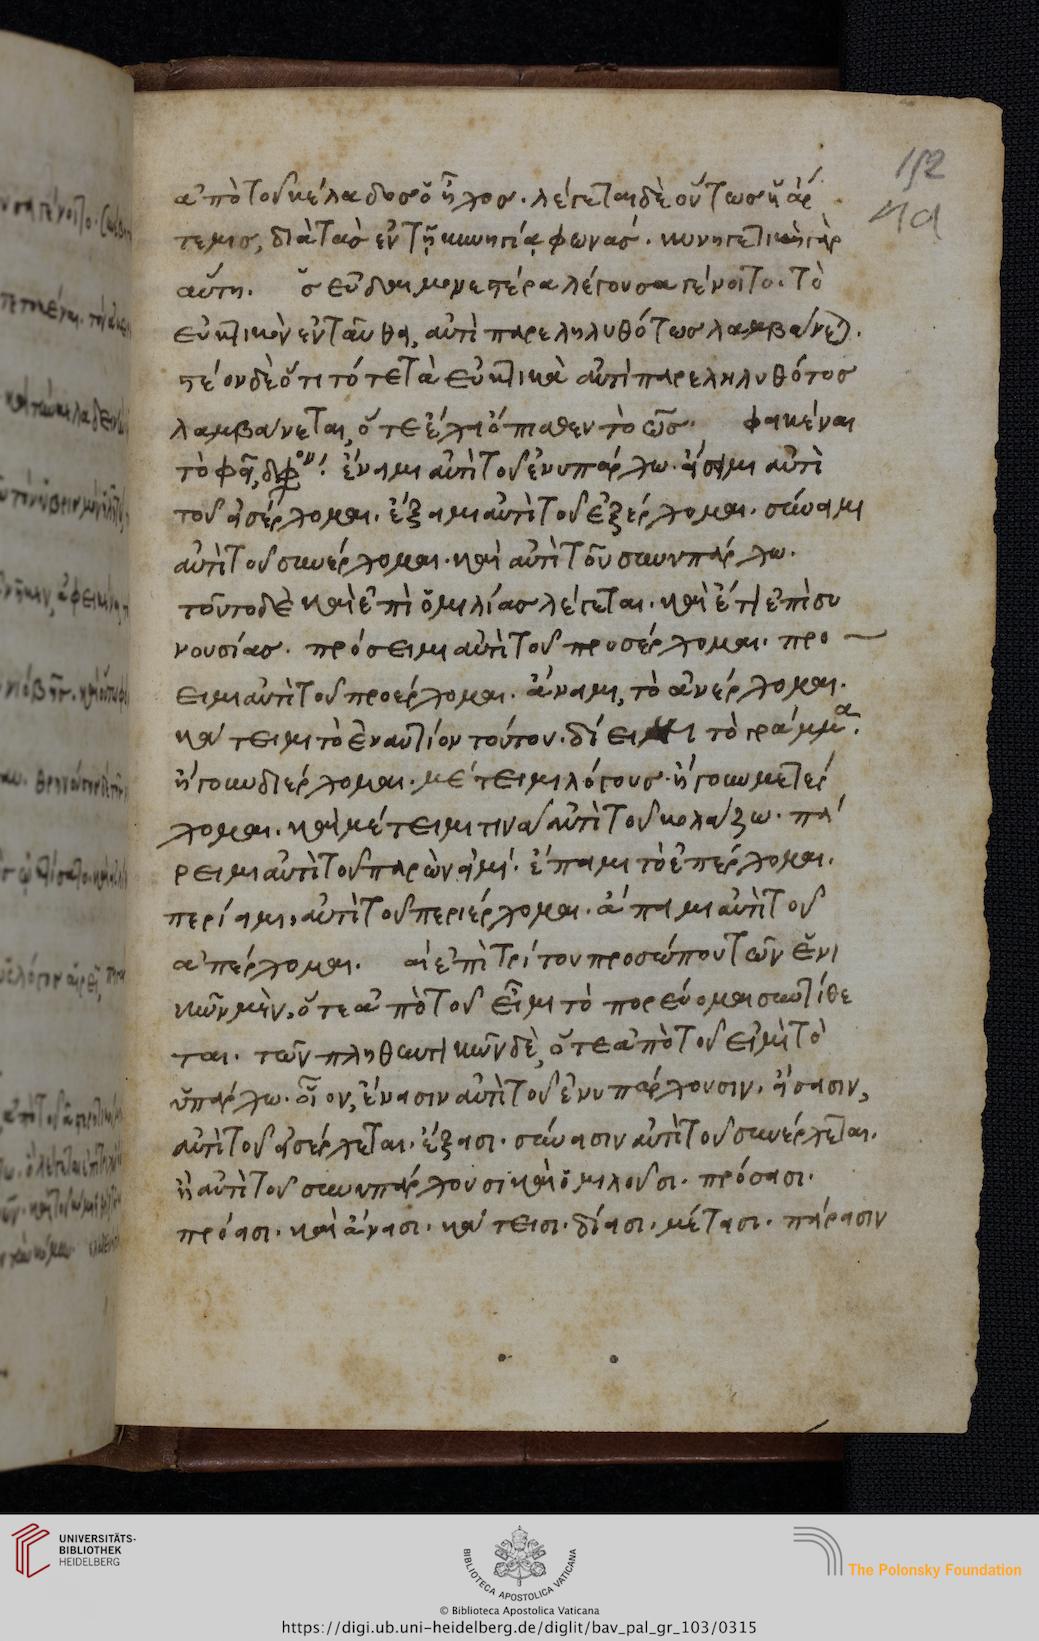 152
ἀπὸ τοῦ κέλαδος ὁ ἦχος. λέγεται δὲ οὕτως ἡ ἄρ
τεμις, διὰ τὰς ἐν τῇ κυνηγίᾳ φωνάς. κυνηγετικὴ γὰρ
αὕτη. ὃς εὐδαιμονεστέρα λέγουσα γένοιτο. τὸ
εὐκτικὸν ἐνταῦθα, ἀντὶ παρεληλυθότως λαμβάνεται.
ἰστέον δὲ ὅτι τότε τὰ εὐκτικὰ ἀντὶ παρεληλυθότος
λαμβάνεται, ὅτε ἔχει ὄπιθεν τὸ ὡς. φακέναι
ἔνειμι ἀντὶ τοῦ ἐνυπάρχω. εἴσειμι ἀντὶ
τοῦ εἰσέρχομαι. ἔξειμι ἀντὶ τοῦ ἐξέρχομαι. σύνειμι
ἀντὶ τοῦ συνέρχομαι. καὶ ἀντὶ τοῦ συνυπάρχω.
τοῦτο δὲ καὶ ἐπὶ ὁμιλίας λέγεται. καὶ ἔτι ἐπὶ συ
νουσίας. πρόσειμι ἀντὶ τοῦ προσέρχομαι. πρό
ειμι ἀντὶ τοῦ προέρχομαι. ἄνειμι, τὸ ἀνέρχομαι.
κάτειμι τὸ ἐναντίον τούτου. δίειμι τὸ γράμμα.
ἤγουν διέρχομαι. μέτειμι λόγους. ἤγουν μετέρ
χομαι. καὶ μέτειμι τινὰ ἀντὶ τοῦ κολάζω. πά
ρειμι ἀντὶ τοῦ παρὼν εἰμί. ἔπειμι τὸ ἐπέρχομαι.
περίειμι, ἀντὶ τοῦ περιέρχομαι. ἄπειμι ἀντὶ τοῦ
ἀπέρχομαι. αἱ ἐπὶ τρίτου προσώπου τῶν ἑνι
κῶν μὲν, ὅτε ἀπὸ τοῦ εἶμι τὸ πορεύομαι συντίθε
ται. τῶν πληθυντικῶν δὲ, ὅτε ἀπὸ τοῦ εἰμὶ τὸ
ὑπάρχω. οἷον, ἔνεισιν ἀντὶ τοῦ ἐνυπάρχουσιν. εἴσεισιν,
ἀντὶ τοῦ εἰσέρχεται. ἔξεισι. σύνεισιν ἀντὶ τοῦ συνέρχεται.
ἢ ἀντὶ τοῦ συνυπάρχουσι καὶ ὁμιλοῦσι. πρόσεισι.
πρόεισι. καὶ ἄνεισι. κάτεισι. δίεισι. μέτεισι. πάρεισιν
UNIVERSITÄTS-
BIBLIOTHEK
HEIDELBERG
BIBLIOTECA APOSTOLICA VATICANA
The Polonsky Foundation
© Biblioteca Apostolica Vaticana
https://digi.ub.uni-heidelberg.de/diglit/bav_pal_gr_103/0315